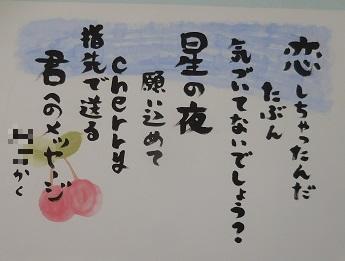 恋しちゃったんだ
たぶん
気づいてないでしょう?
星の夜
願い込めて
cherry
指先で送る
君へのメッセージ
かく